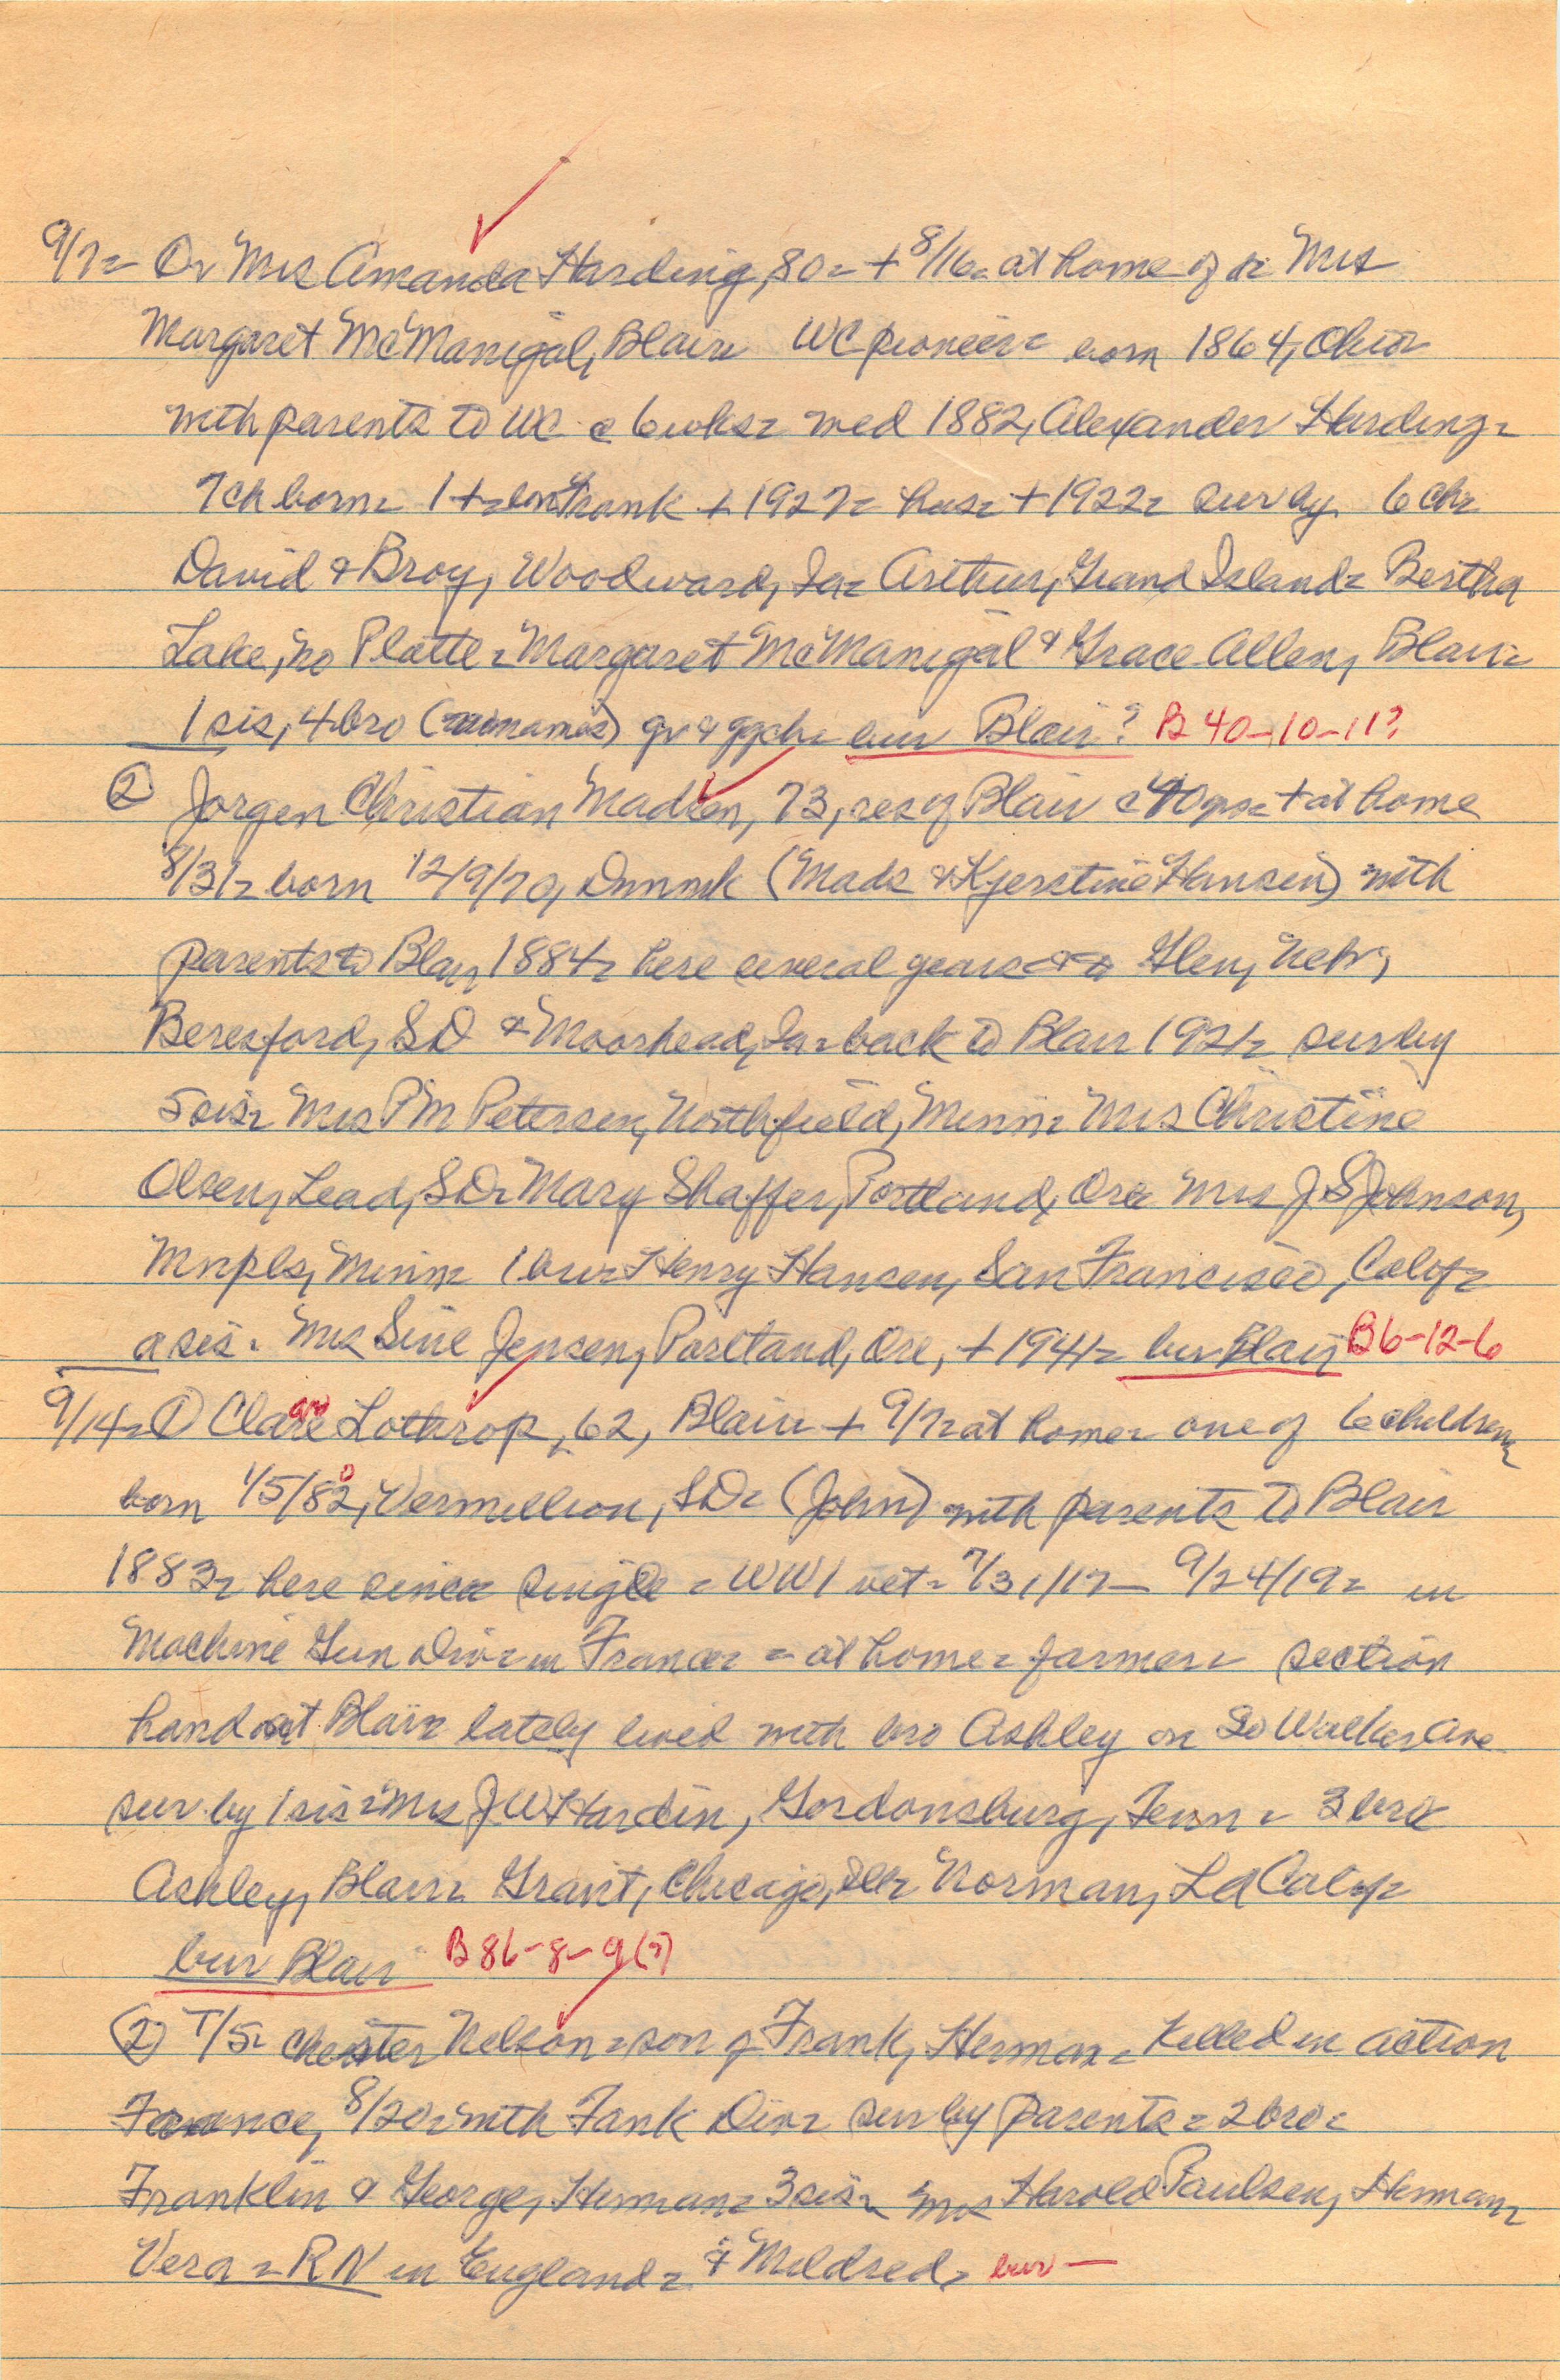 9/7= Ov Mrs Amanda Harding, 80= + 8/16= at home of da Mrs
Margaret McManigal, Blair= WC pioneer= born 1864, Ohio=
with parents to WC @ 6 wks= med 1882, Alexander Harding=
7 ch born= 1 += son Frank + 1927= hus= + 1922= sur by 6 ch=
David & Broy, Woodward, Ia= Arthur, Grand Island= Bertha
Lake, No Platte= Margaret McManigal & Grace Allen, Blair=
1 sis, 4 bro (no names) gr & ggch= bur Blair? B 40-10-11?
② Jorgen Christian Madsen, 73, res of Blair c 40 yrs= + at home
8/31= born 12/9/70, Dnmrk (Mads & Kjerstine Hansen) with
parents to Blair, 1884= here several years Glen, Nebr,
Beresford, SD & Moorhead, Ia= back to Blair 1921= sur by
5 sis= Mrs PM Petersen, Northfield, Minn= Mrs Christine
Olsen, Lead, SD= Mary Shaffer, Portland, Ore= Mrs J S Johnson,
Mnpls, Minn= 1 bro= Henry Hansen, San Francisco, Calif=
a sis= Mrs Sine Jensen, Portland, Ore, + 1941= bur Blair B6-12-6
9/14= ① Clare Lothrop, 62, Blair= + 9/7= at home= one of 6 children=
born 1/5/82, Vermillion, SD= (John) with parents to Blair
1883= here since= single= WW1 vet= 7/31/17- 9/24/19= in
Machine Gun Div= in France= at home= farmer= section
hand at Blair= lately lived with bro Ashley on So Walker Ave
sur by 1 sis= Mrs J W Hardin, Gordonsburg, Tenn= 3 bro=
Ashley, Blair= Grant, Chicago, Ill= Norman, LA Calif=
bur Blair B 86-8-9(?)
② T/5= Chester Nelson= son of Frank, Herman= Killed in action
France, 8/20= with Tank Div= sur by parents= 2 bro=
Franklin & George, Herman= 3 sis= Mrs Harold Paulsen, Herman=
Vera= RN in England= & Mildred= bur —